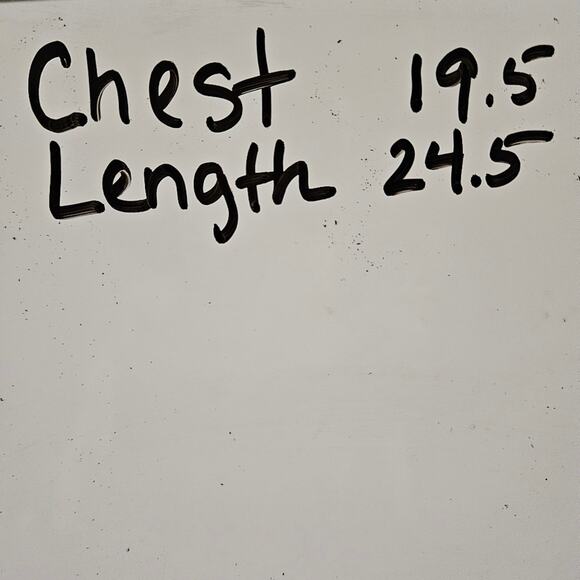 Chest 19.5
Length 24.5